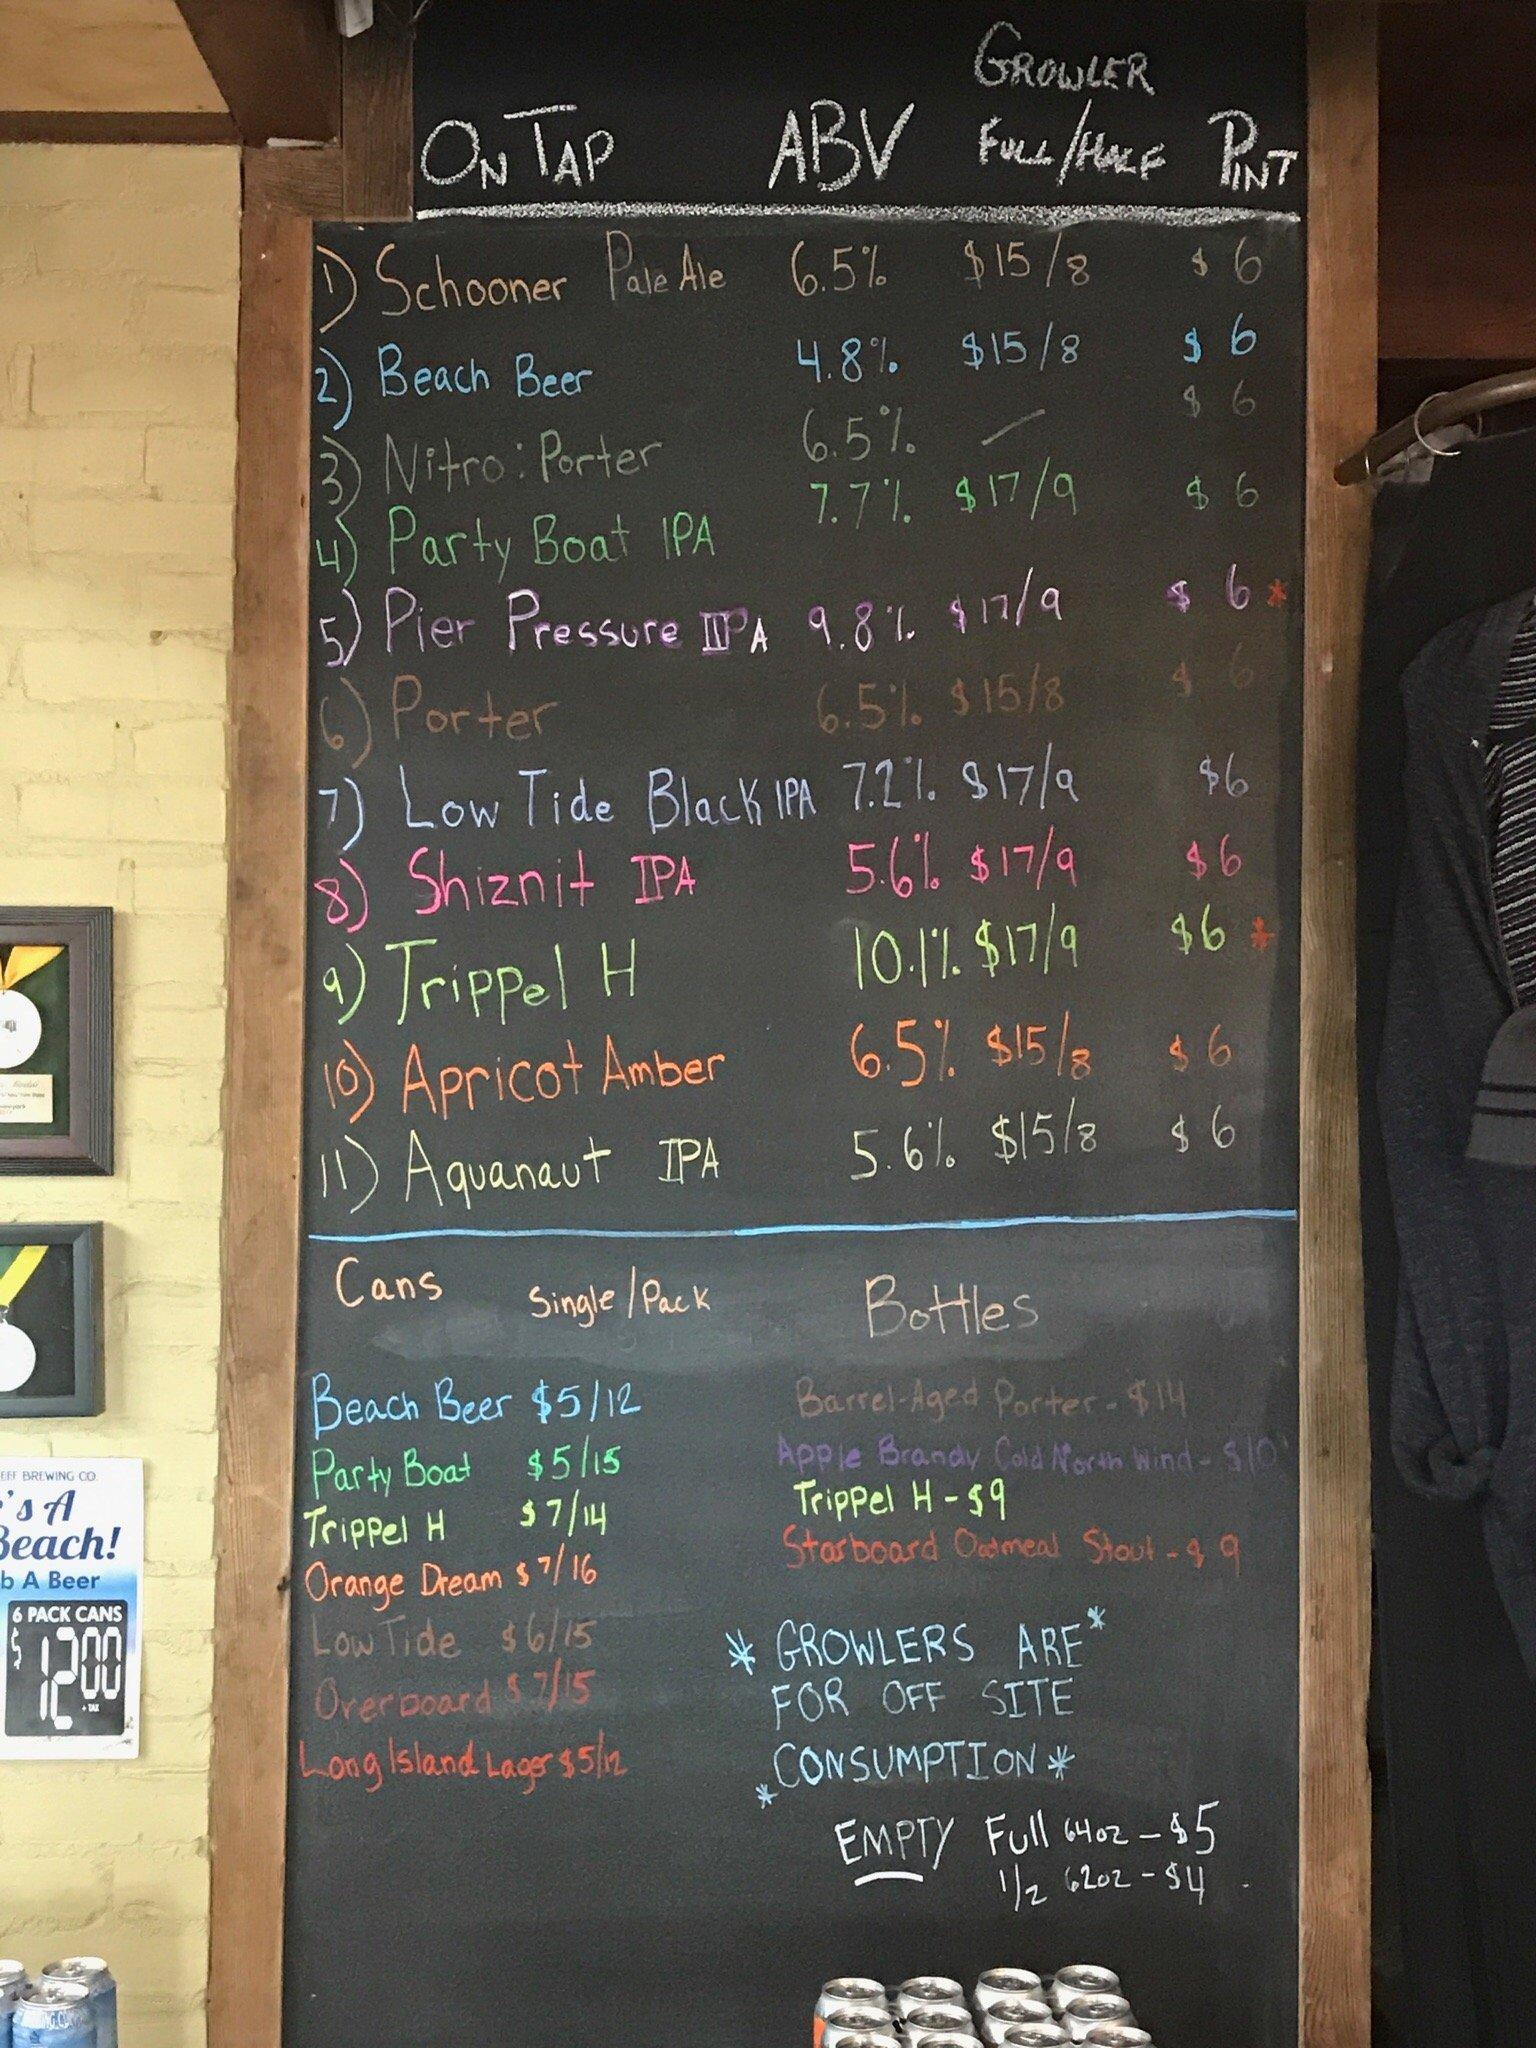 GROWLER
ON TAP ABV FULL/HALF PINT
1) Schooner Pale Ale 6.5% $15/8 $6
2) Beach Beer 4.8% $15/8 $6
3) Nitro: Porter 6.5% — $6
4) Party Boat IPA 7.7% $17/9 $6
5) Pier Pressure IIPA 9.8% $17/9 $6 *
6) Porter 6.5% $15/8 $6
7) Low Tide Black IPA 7.2% $17/9 $6
8) Shiznit IPA 5.6% $17/9 $6
9) Trippel H 10.1% $17/9 $6 *
10) Apricot Amber 6.5% $15/8 $6
11) Aquanaut IPA 5.6% $15/8 $6
Cans Single/Pack
Beach Beer $5/12
Party Boat $5/15
Trippel H $7/14
Orange Dream $7/16
Low Tide $6/15
Overboard $7/15
Long Island Lager $5/12
Bottles
Barrel-Aged Porter - $14
Apple Brandy Cold North Wind - $10
Trippel H - $9
Starboard Oatmeal Stout - $9
* GROWLERS ARE *
FOR OFF SITE
* CONSUMPTION *
EMPTY Full 64oz - $5
1/2 62oz - $4
EFF BREWING CO.
's A
Beach!
b A Beer
6 PACK CANS
$12.00
+ TAX